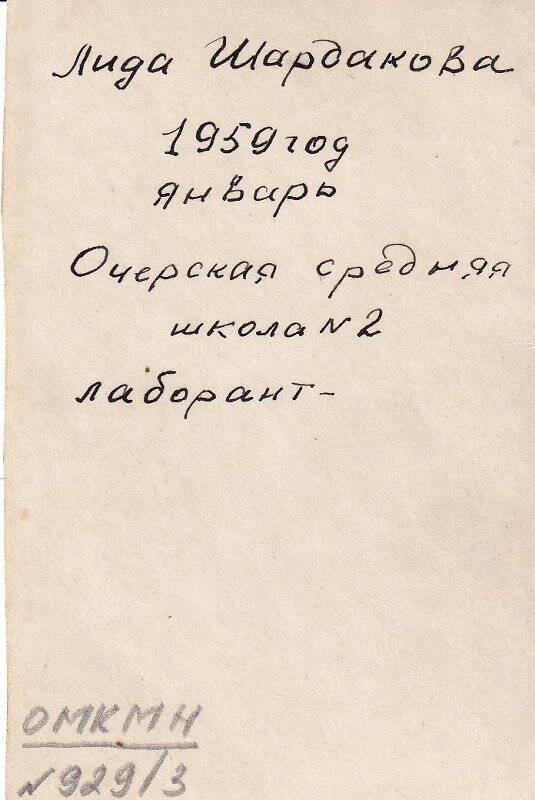 Лида Шардакова
1959 год
январь
Очерская средняя
школа N 2
лаборант-
ОМКМН
N 929/3